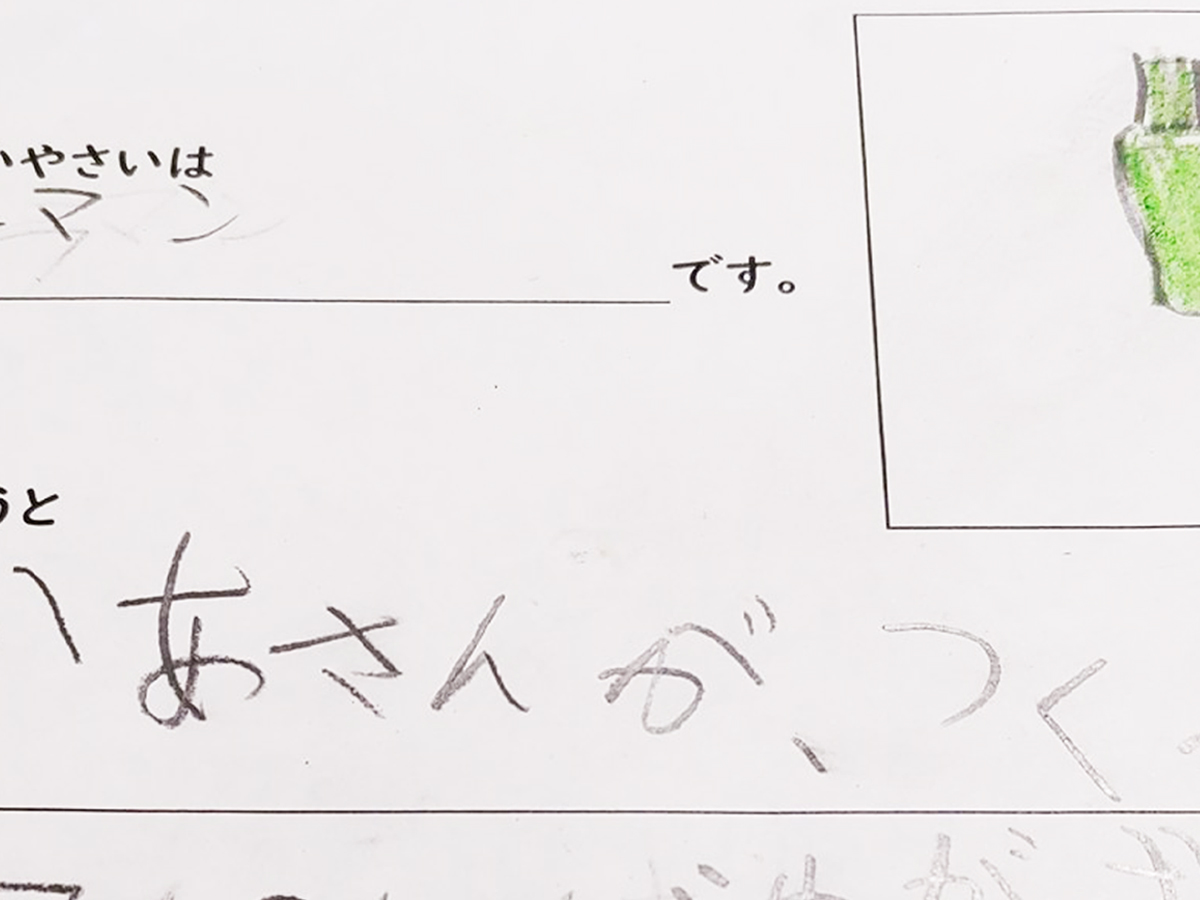 いやさいは
マン
です。
うと
かあさんが、つく